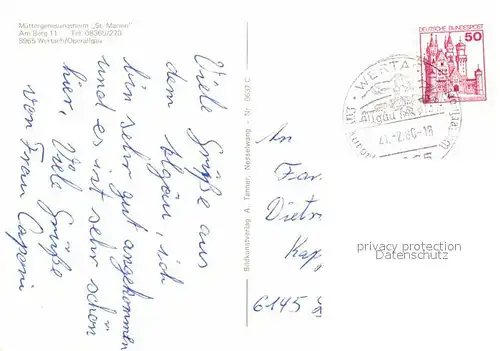 Müttergenesungsheim „St. Marien"
Am Berg 11 Tel. 08365/270
8965 Wertach/Oberallgäu
Viele Grüße aus
dem Allgäu, ich
bin sehr gut angekommen
und es ist sehr schön
hier. Viele Grüße
von Frau Caponi
Bildkunstverlag A. Tanner, Nesselwang - Nr. 8637 C
DEUTSCHE BUNDESPOST
50
WERTA
Allgäu
-2.80-18
An
Fa
Dietr
Kap
6145
privacy protection
Datenschutz